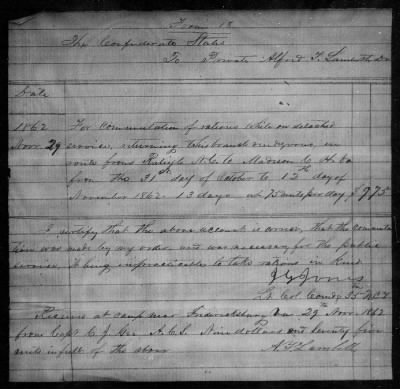 Form 18
The Confederate States
To Private Alfred T. Lambeth Dr
Date
1862 For commutation of rations while on detached
Novr. 29 service, returning
route from Raleigh N.C. to Madison C. H. Va
from the 31st day of October to 12th day of
November 1862. 13 days at 75 cents per day $9.75
I certify that the above account is correct, that the commuta
tion was made by my order, and was necessary for the public
service, it being impracticable to take rations in kind
J G Jones
Lt. Col. Comdg 35th N.C.T.
Received at camp near Fredericksburg Va 29th Novr. 1862
from Capt C. J. Gee A.C.S. Nine dollars and seventy five
cents in full of the above
A. T. Lambeth